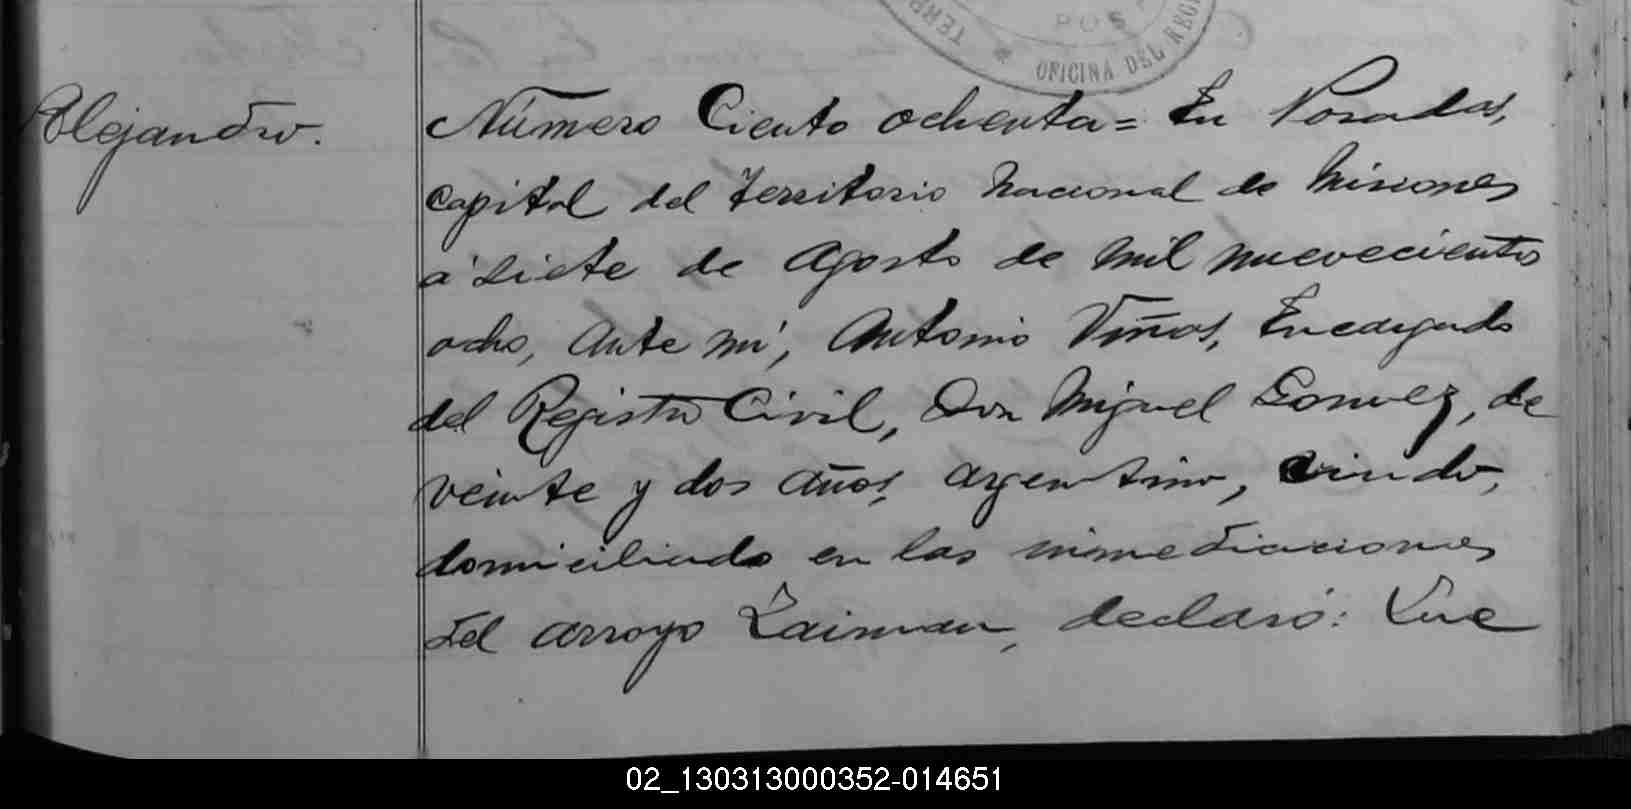 TERR
POS
OFICINA DEL REG
Alejandro.
Número Ciento ochenta = En Posadas,
capital del territorio Nacional de Misiones
á siete de Agosto de mil nuevecientos
ocho, Ante mí, Antonio Viñas, Encargado
del Registro Civil, Don Miguel Gomez, de
veinte y dos años, argentino, viudo,
domiciliado en las inmediaciones
del arroyo Zaiman, declaró: Que
02_130313000352-014651